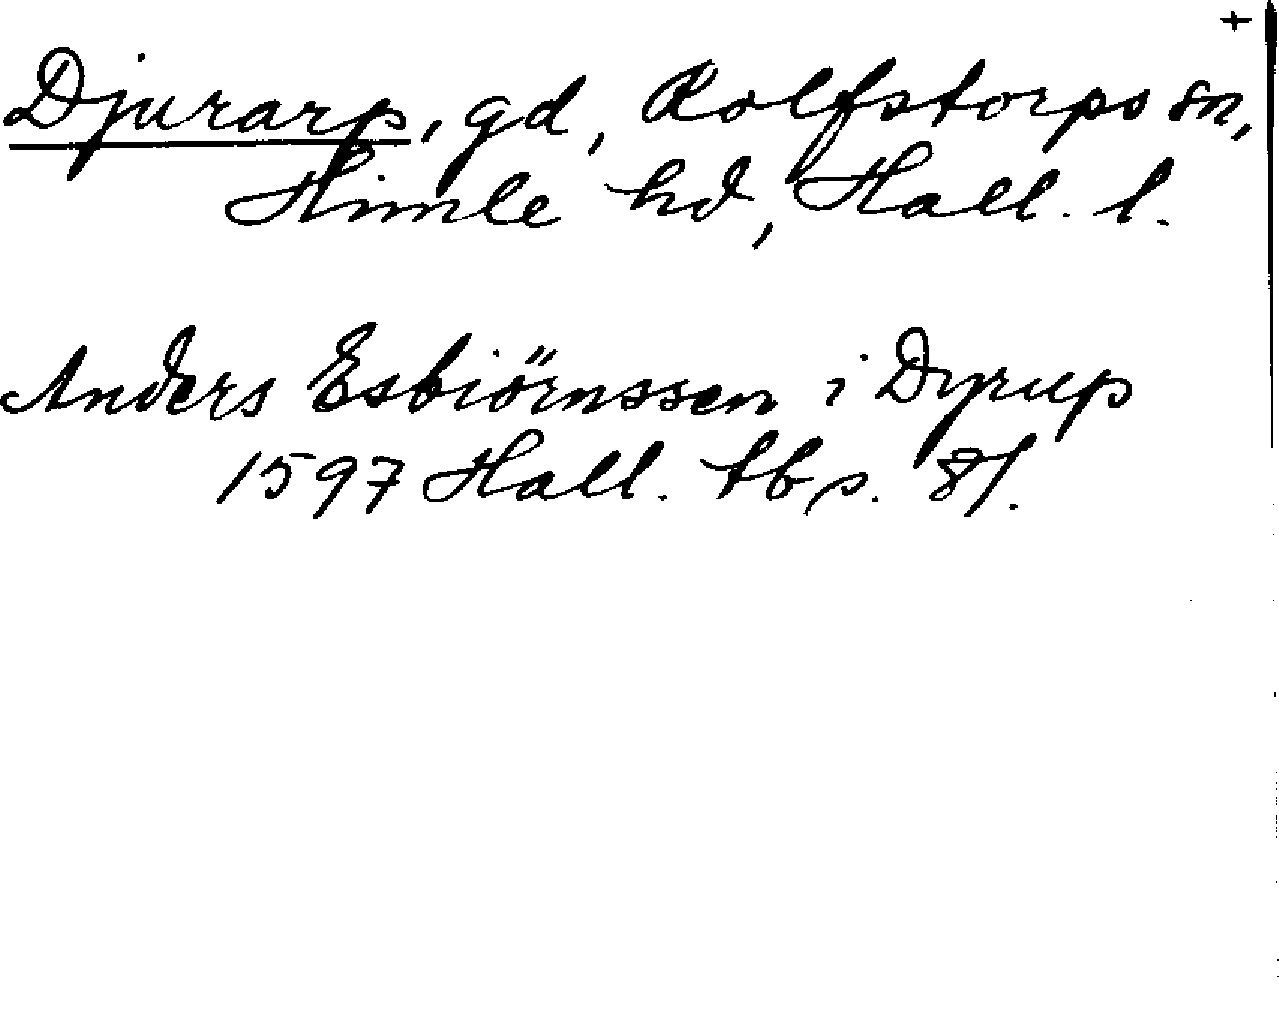 +
Djurarp, gd, Rolfstorps sn,
Himle hd, Hall. l.
Anders Esbiörnssen i Dyrup
1597 Hall. tb, s. 81.